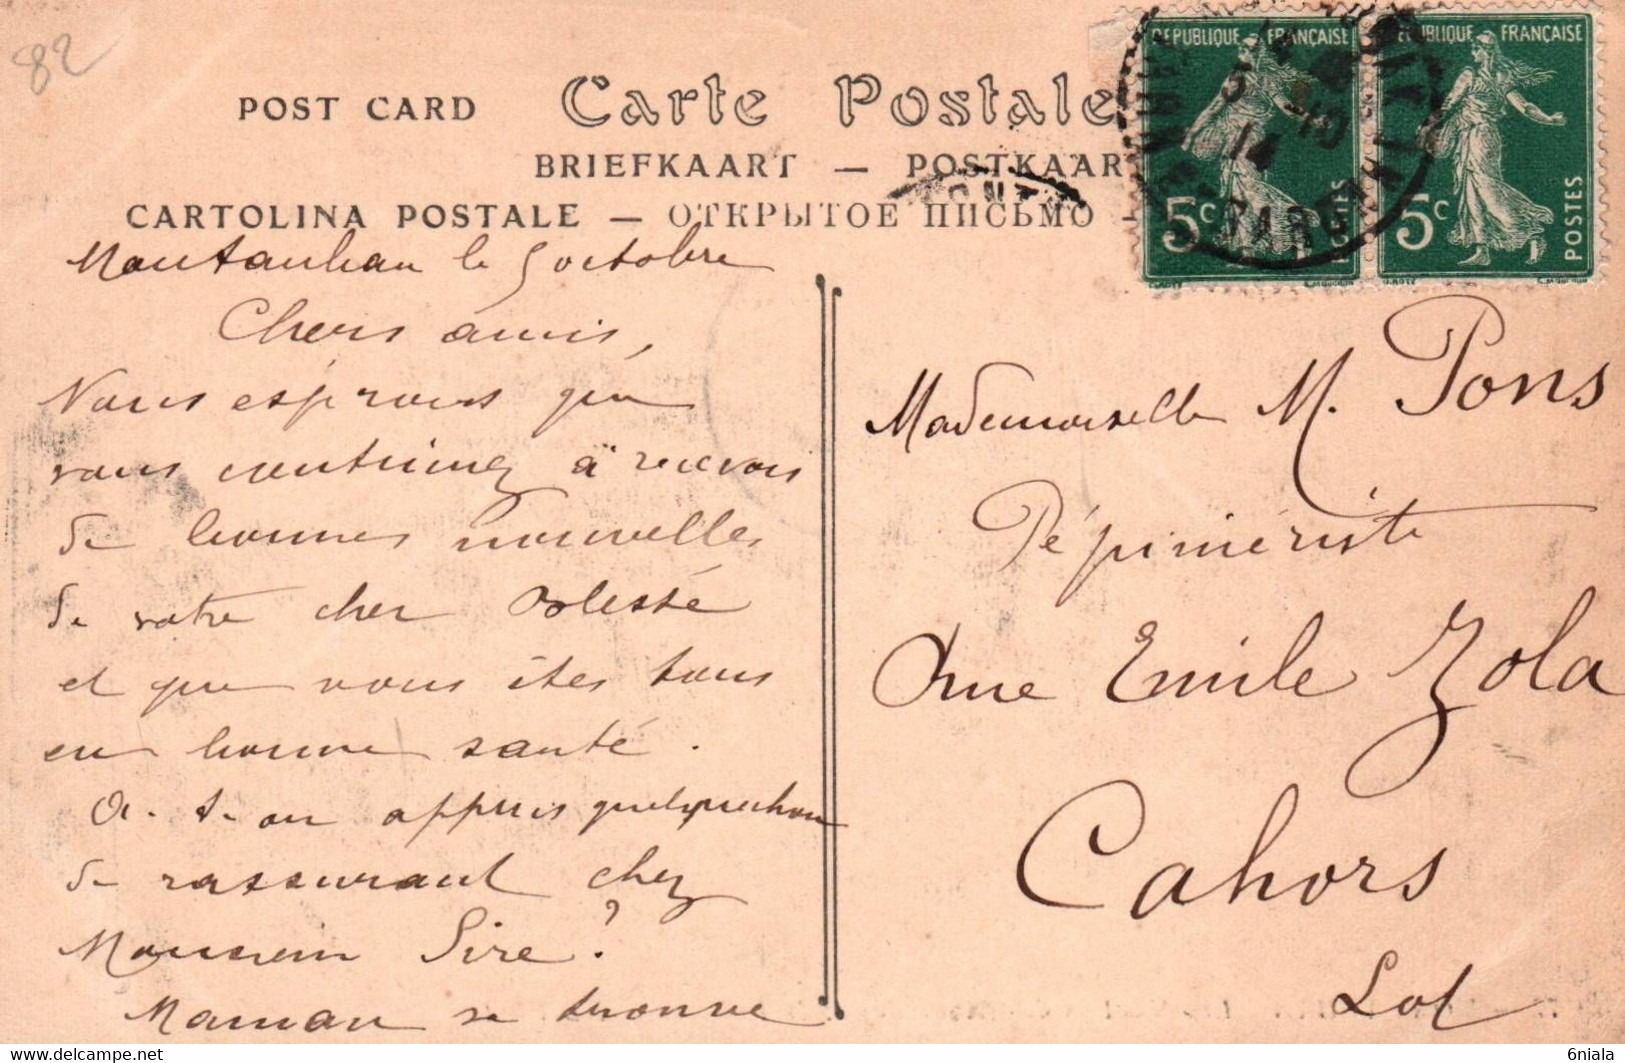 82
POST CARD Carte Postale
BRIEFKAART — POSTKAAR
CARTOLINA POSTALE — ОТКРЫТОЕ ПИСЬМО
REPUBLIQUE FRANÇAISE
5c POSTES
REPUBLIQUE FRANÇAISE
5c POSTES
5 -10
14
TARN-ET-GARONNE
Montauban le 5 octobre
Chers amis,
Nous espérons que
vous continuez à recevoir
de bonnes nouvelles
de votre cher
et que vous êtes tous
en bonne santé.
A-t-on appris quelquechose
de rassurant chez
Monsieur Sire ?
Maman se trouve
Mademoiselle M. Pons
Pépiniériste
rue Emile Zola
Cahors
Lot
6niala